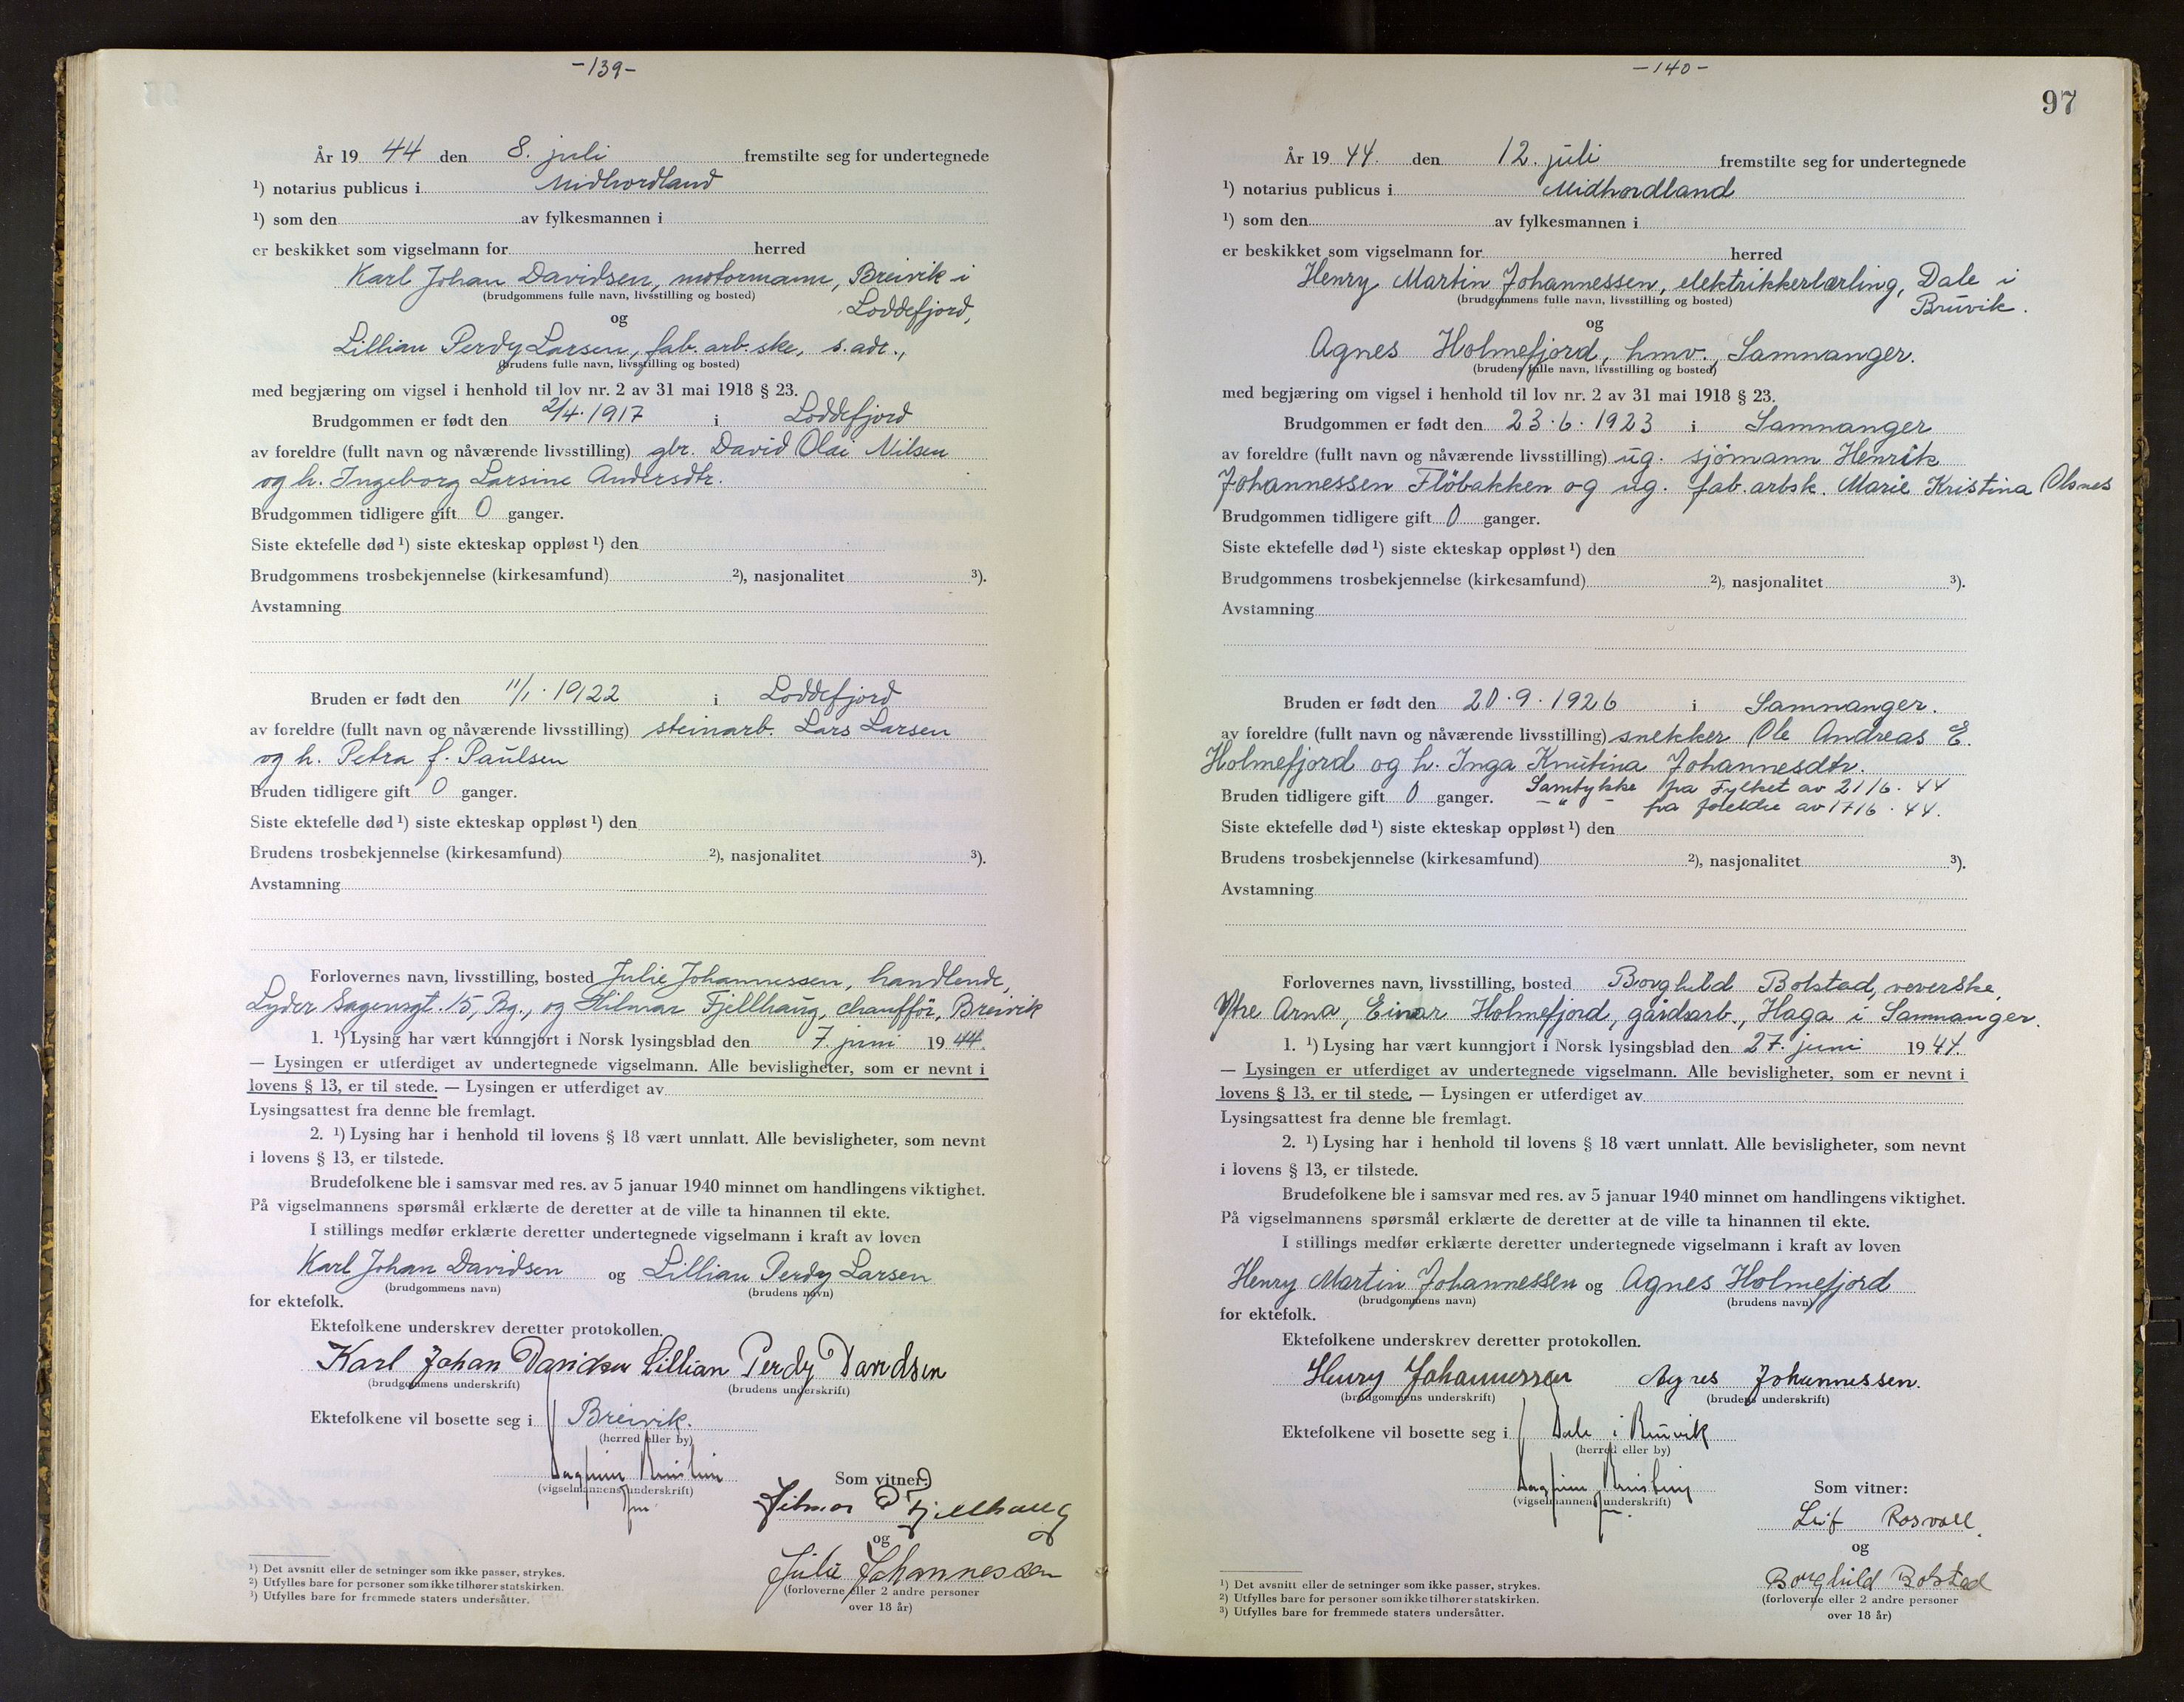 -139-
År 19 44 den 8. juli fremstilte seg for undertegnede
¹) notarius publicus i Midhordland
¹) som den av fylkesmannen i
er beskikket som vigselmann for herred
Karl Johan Davidsen, motormann, Breivik i
(brudgommens fulle navn, livsstilling og bosted)
Loddefjord,
og
Lillian Perdy Larsen, fab.arb.ske, s.adr.,
(brudens fulle navn, livsstilling og bosted)
med begjæring om vigsel i henhold til lov nr. 2 av 31 mai 1918 § 23.
Brudgommen er født den 2/4. 1917 i Loddefjord
av foreldre (fullt navn og nåværende livsstilling) gbr. David Olai Nilsen
og h. Ingeborg Larsine Andersdtr.
Brudgommen tidligere gift 0 ganger.
Siste ektefelle død ¹) siste ekteskap oppløst ¹) den
Brudgommens trosbekjennelse (kirkesamfund) ²), nasjonalitet ³).
Avstamning
Bruden er født den 11/1. 1922 i Loddefjord
av foreldre (fullt navn og nåværende livsstilling) steinarb. Lars Larsen
og h. Petra f. Paulsen
Bruden tidligere gift 0 ganger.
Siste ektefelle død ¹) siste ekteskap oppløst ¹) den
Brudens trosbekjennelse (kirkesamfund) ²), nasjonalitet ³).
Avstamning
Forlovernes navn, livsstilling, bosted Julie Johannessen, handlende,
Lyder Sagensgt. 15, Bg., og Hilmar Fjellhaug, chauffør, Breivik
1. ¹) Lysing har vært kunngjort i Norsk lysingsblad den 7. juni 1944.
— Lysingen er utferdiget av undertegnede vigselmann. Alle bevisligheter, som er nevnt i
lovens § 13, er til stede. — Lysingen er utferdiget av
Lysingsattest fra denne ble fremlagt.
2. ¹) Lysing har i henhold til lovens § 18 vært unnlatt. Alle bevisligheter, som nevnt
i lovens § 13, er tilstede.
Brudefolkene ble i samsvar med res. av 5 januar 1940 minnet om handlingens viktighet.
På vigselmannens spørsmål erklærte de deretter at de ville ta hinannen til ekte.
I stillings medfør erklærte deretter undertegnede vigselmann i kraft av loven
Karl Johan Davidsen og Lillian Perdy Larsen
(brudgommens navn) (brudens navn)
for ektefolk.
Ektefolkene underskrev deretter protokollen.
Karl Johan Davidsen Lillian Perdy Davidsen
(brudgommens underskrift) (brudens underskrift)
Ektefolkene vil bosette seg i Breivik.
(herred eller by)
(vigselmannens underskrift)
Som vitner:
Hilmar Fjellhaug
og
Julie Johannessen
(forloverne eller 2 andre personer
over 18 år)
¹) Det avsnitt eller de setninger som ikke passer, strykes.
²) Utfylles bare for personer som ikke tilhører statskirken.
³) Utfylles bare for fremmede staters undersåtter.
-140-
97
År 19 44. den 12. juli fremstilte seg for undertegnede
¹) notarius publicus i Midhordland
¹) som den av fylkesmannen i
er beskikket som vigselmann for herred
Henry Martin Johannessen, elektrikkerlærling, Dale i
(brudgommens fulle navn, livsstilling og bosted)
Bruvik.
og
Agnes Holmefjord, hmv., Samnanger.
(brudens fulle navn, livsstilling og bosted)
med begjæring om vigsel i henhold til lov nr. 2 av 31 mai 1918 § 23.
Brudgommen er født den 23.6.1923 i Samnanger
av foreldre (fullt navn og nåværende livsstilling) ug. sjömann Henrik
Johannessen Flöbakken og ug. fab.arbsk. Marie Kristina Olsnes
Brudgommen tidligere gift 0 ganger.
Siste ektefelle død ¹) siste ekteskap oppløst ¹) den
Brudgommens trosbekjennelse (kirkesamfund) ²), nasjonalitet ³).
Avstamning
Bruden er født den 20.9.1926 i Samnanger.
av foreldre (fullt navn og nåværende livsstilling) snekker Ole Andreas E.
Holmefjord og h. Inga Knutina Johannesdtr.
Bruden tidligere gift 0 ganger. Samtykke fra Fylket av 21/6. 44
— " — fra foreldre av 17/6. 44.
Siste ektefelle død ¹) siste ekteskap oppløst ¹) den
Brudens trosbekjennelse (kirkesamfund) ²), nasjonalitet ³).
Avstamning
Forlovernes navn, livsstilling, bosted Borghild Bolstad, veverske,
Ytre Arna, Einar Holmefjord, gårdsarb., Haga i Samnanger.
1. ¹) Lysing har vært kunngjort i Norsk lysingsblad den 27. juni 1944.
— Lysingen er utferdiget av undertegnede vigselmann. Alle bevisligheter, som er nevnt i
lovens § 13, er til stede. — Lysingen er utferdiget av
Lysingsattest fra denne ble fremlagt.
2. ¹) Lysing har i henhold til lovens § 18 vært unnlatt. Alle bevisligheter, som nevnt
i lovens § 13, er tilstede.
Brudefolkene ble i samsvar med res. av 5 januar 1940 minnet om handlingens viktighet.
På vigselmannens spørsmål erklærte de deretter at de ville ta hinannen til ekte.
I stillings medfør erklærte deretter undertegnede vigselmann i kraft av loven
Henry Martin Johannessen og Agnes Holmefjord
(brudgommens navn) (brudens navn)
for ektefolk.
Ektefolkene underskrev deretter protokollen.
Henry Johannessen Agnes Johannessen.
(brudgommens underskrift) (brudens underskrift)
Ektefolkene vil bosette seg i Dale i Bruvik
(herred eller by)
(vigselmannens underskrift)
Som vitner:
Leif Rosvoll.
og
Borghild Bolstad
(forloverne eller 2 andre personer
over 18 år)
¹) Det avsnitt eller de setninger som ikke passer, strykes.
²) Utfylles bare for personer som ikke tilhører statskirken.
³) Utfylles bare for fremmede staters undersåtter.